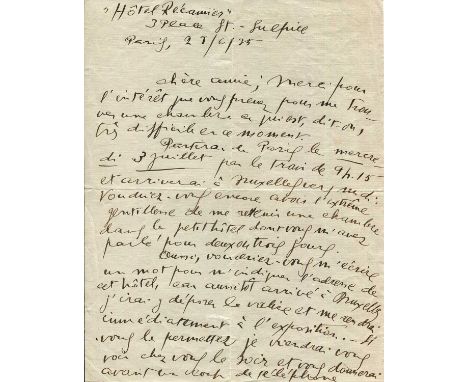 "Hôtel Récamier"
3 Place St.-Sulpice
Paris, 28/6/35
Chère amie; Merci pour
l'intérêt que vous prenez pour me trou-
ver une chambre ce qui est, dit-on,
très difficile en ce moment
Partirai de Paris le mercre-
di 3 juillet par le train de 9h.15
et arriverai à Bruxelles vers midi.
Voudriez-vous encore avoir l'extrême
gentillesse de me retenir une chambre
dans le petit hôtel dont vous m'avez
parlé pour deux ou trois jours
aussi, voudriez-vous m'écrire
un mot pour m'indiquer l'adresse de
cet hôtel, car aussitôt arrivé à Bruxelles
j'irai y déposer la valise et me rendrai
immédiatement à l'exposition... Si
vous le permettez je viendrai vous
voir chez vous le soir et vous donnerai
avant un coup de téléphone